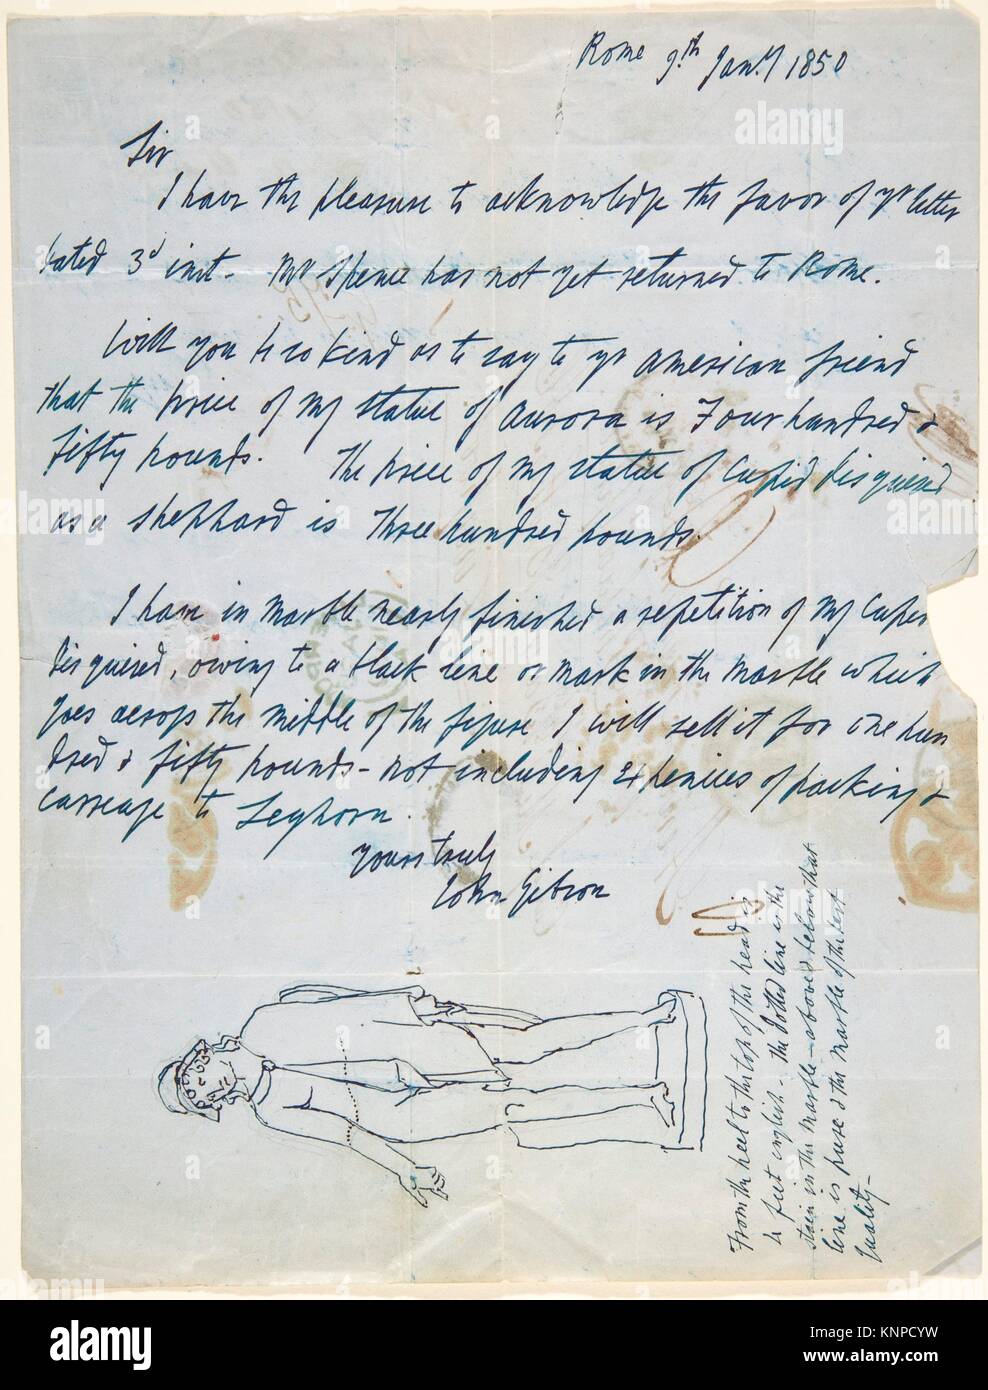 Rome 9th Jany 1850
Sir
I have the pleasure to acknowledge the favor of yr letter
dated 3d inst - Mr Spence has not yet returned to Rome.
Will you be so kind as to say to yr American friend
that the price of my statue of Aurora is Four hundred &
fifty pounds. The price of my statue of Cupid disguised
as a shephard is three hundred pounds.
I have in marble nearly finished a repetition of my Cupid
disguised, owing to a black line or mark in the marble which
goes across the middle of the figure I will sell it for one hun
dred & fifty pounds - not including expences of packing &
carreage to Leghorn.
yours truly
John Gibson
From the heel to the top of the head is
4 feet english - The dotted line is the
stain in the marble - above & below that
line is pure & the marble of the best
quality -
a alamy stock photo
alamy
www.alamy.com
Image ID: KNPCYW